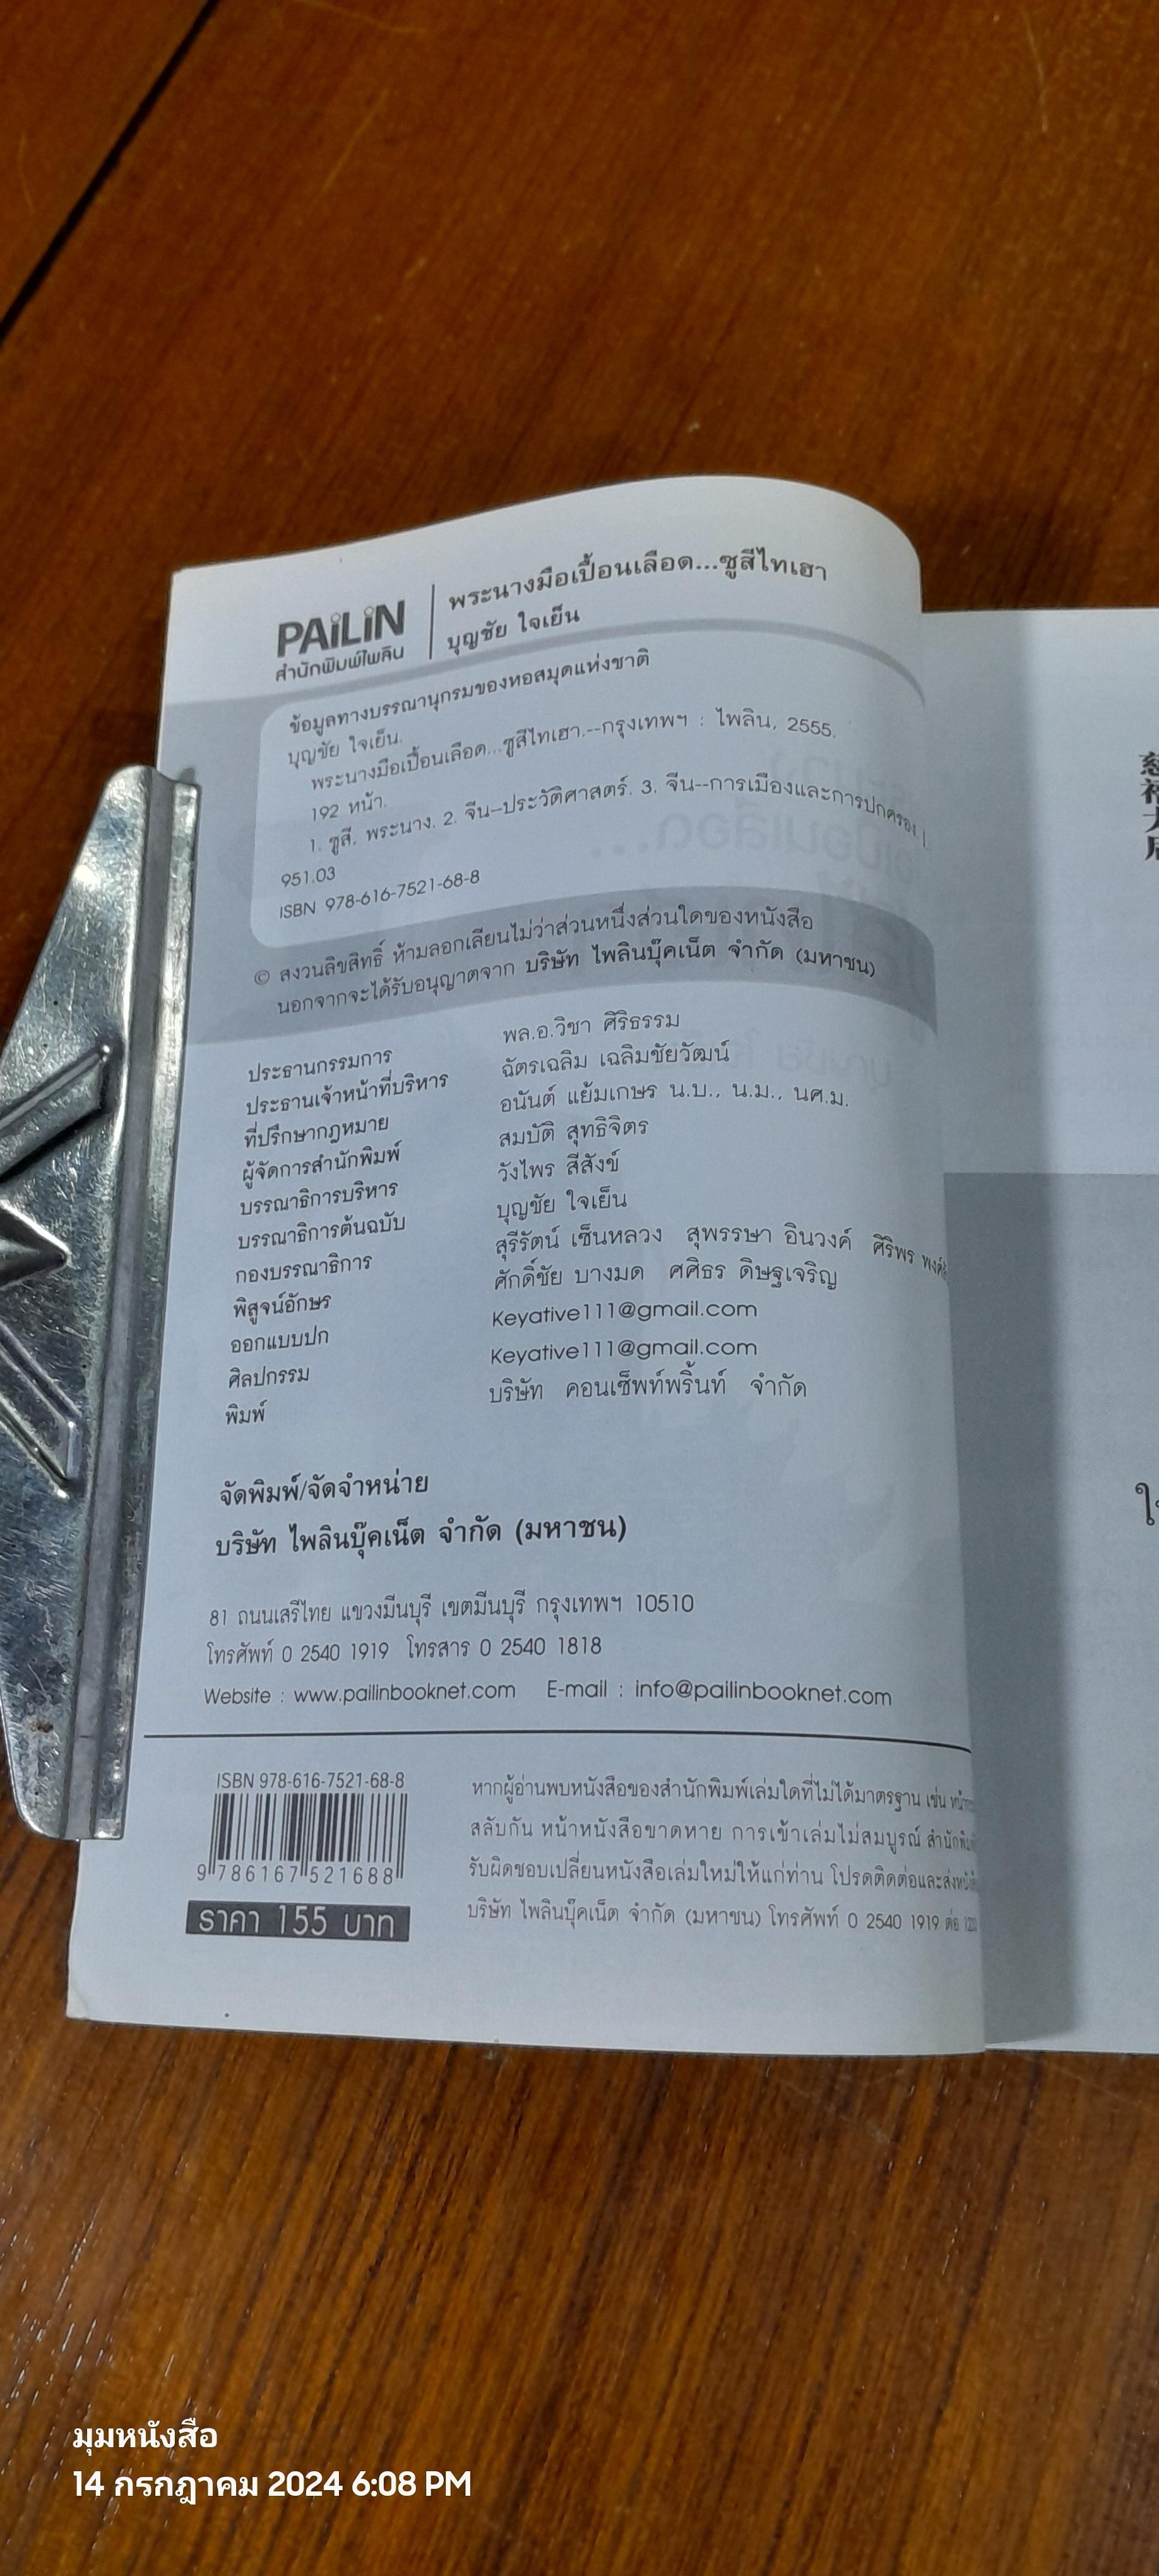 PAiLiN
สำนักพิมพ์ไพลิน
พระนางมือเปื้อนเลือด...ซูสีไทเฮา
บุญชัย ใจเย็น
ข้อมูลทางบรรณานุกรมของหอสมุดแห่งชาติ
บุญชัย ใจเย็น.
พระนางมือเปื้อนเลือด...ซูสีไทเฮา.--กรุงเทพฯ : ไพลิน, 2555.
192 หน้า.
1. ซูสี, พระนาง. 2. จีน--ประวัติศาสตร์. 3. จีน--การเมืองและการปกครอง. I.
951.03
ISBN 978-616-7521-68-8
© สงวนลิขสิทธิ์ ห้ามลอกเลียนไม่ว่าส่วนหนึ่งส่วนใดของหนังสือ
นอกจากจะได้รับอนุญาตจาก บริษัท ไพลินบุ๊คเน็ต จำกัด (มหาชน)
ประธานกรรมการ พล.อ.วิชา ศิริธรรม
ประธานเจ้าหน้าที่บริหาร ฉัตรเฉลิม เฉลิมชัยวัฒน์
ที่ปรึกษากฎหมาย อนันต์ แย้มเกษร น.บ., น.ม., นศ.ม.
ผู้จัดการสำนักพิมพ์ สมบัติ สุทธิจิตร
บรรณาธิการบริหาร วังไพร สีสังข์
บรรณาธิการต้นฉบับ บุญชัย ใจเย็น
กองบรรณาธิการ สุรีรัตน์ เซ็นหลวง สุพรรษา อินวงค์ ศิริพร
พิสูจน์อักษร ศักดิ์ชัย บางมด ศศิธร ดิษฐเจริญ
ออกแบบปก Keyative111@gmail.com
ศิลปกรรม Keyative111@gmail.com
พิมพ์ บริษัท คอนเซ็พท์พริ้นท์ จำกัด
จัดพิมพ์/จัดจำหน่าย
บริษัท ไพลินบุ๊คเน็ต จำกัด (มหาชน)
81 ถนนเสรีไทย แขวงมีนบุรี เขตมีนบุรี กรุงเทพฯ 10510
โทรศัพท์ 0 2540 1919 โทรสาร 0 2540 1818
Website : www.pailinbooknet.com E-mail : info@pailinbooknet.com
ISBN 978-616-7521-68-8
9 786167 521688
ราคา 155 บาท
หากผู้อ่านพบหนังสือของสำนักพิมพ์เล่มใดที่ไม่ได้มาตรฐาน เช่น
สลับกัน หน้าหนังสือขาดหาย การเข้าเล่มไม่สมบูรณ์
รับผิดชอบเปลี่ยนหนังสือเล่มใหม่ให้แก่ท่าน โปรดติดต่อและส่ง
บริษัท ไพลินบุ๊คเน็ต จำกัด (มหาชน) โทรศัพท์ 0 2540 1919 ต่อ
มุมหนังสือ
14 กรกฎาคม 2024 6:08 PM